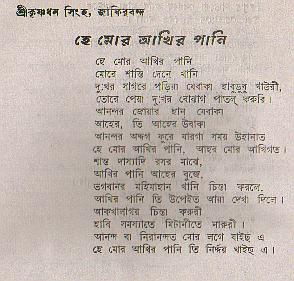 শ্রীকৃষ্ণধন সিংহ, জাফিরবন্দ
হে মোর আখির পানি
হে মোর আখির পানি
মোরে শান্তি দেনে খানি
দুঃখর সাগরে পড়িয়া যেবাকা হাবুডুবু খাউরী,
তোরে পেয়া দুঃখয় বোরাগ পাতল করুরি।
আনন্দর জোয়ার হান যেবাকা
আহের, তি আহের উবাকা
আনন্দর অন্দগ ফুরে যারগা সময় উহানাত
হে মোর আখির পানি, আহর মোর আখিগত।
শান্ত দাস্যাদি রসর মাঝে,
আখির পানি আহের বুজে,
ভগবানর মহিমাহান খানি চিন্তা করলে,
আখির পানি তি উপেইত আয়া দেখা দিলে।
আকখালাগর চিন্তা করুরী
হাবি সমস্যাতে মিটানীতে নারুরী।
আনন্দ বা নিরানন্দত মোর লগে যাইছ এ
হে মোর আখির পানি তি নির্দ্দয় খাইছ এ।